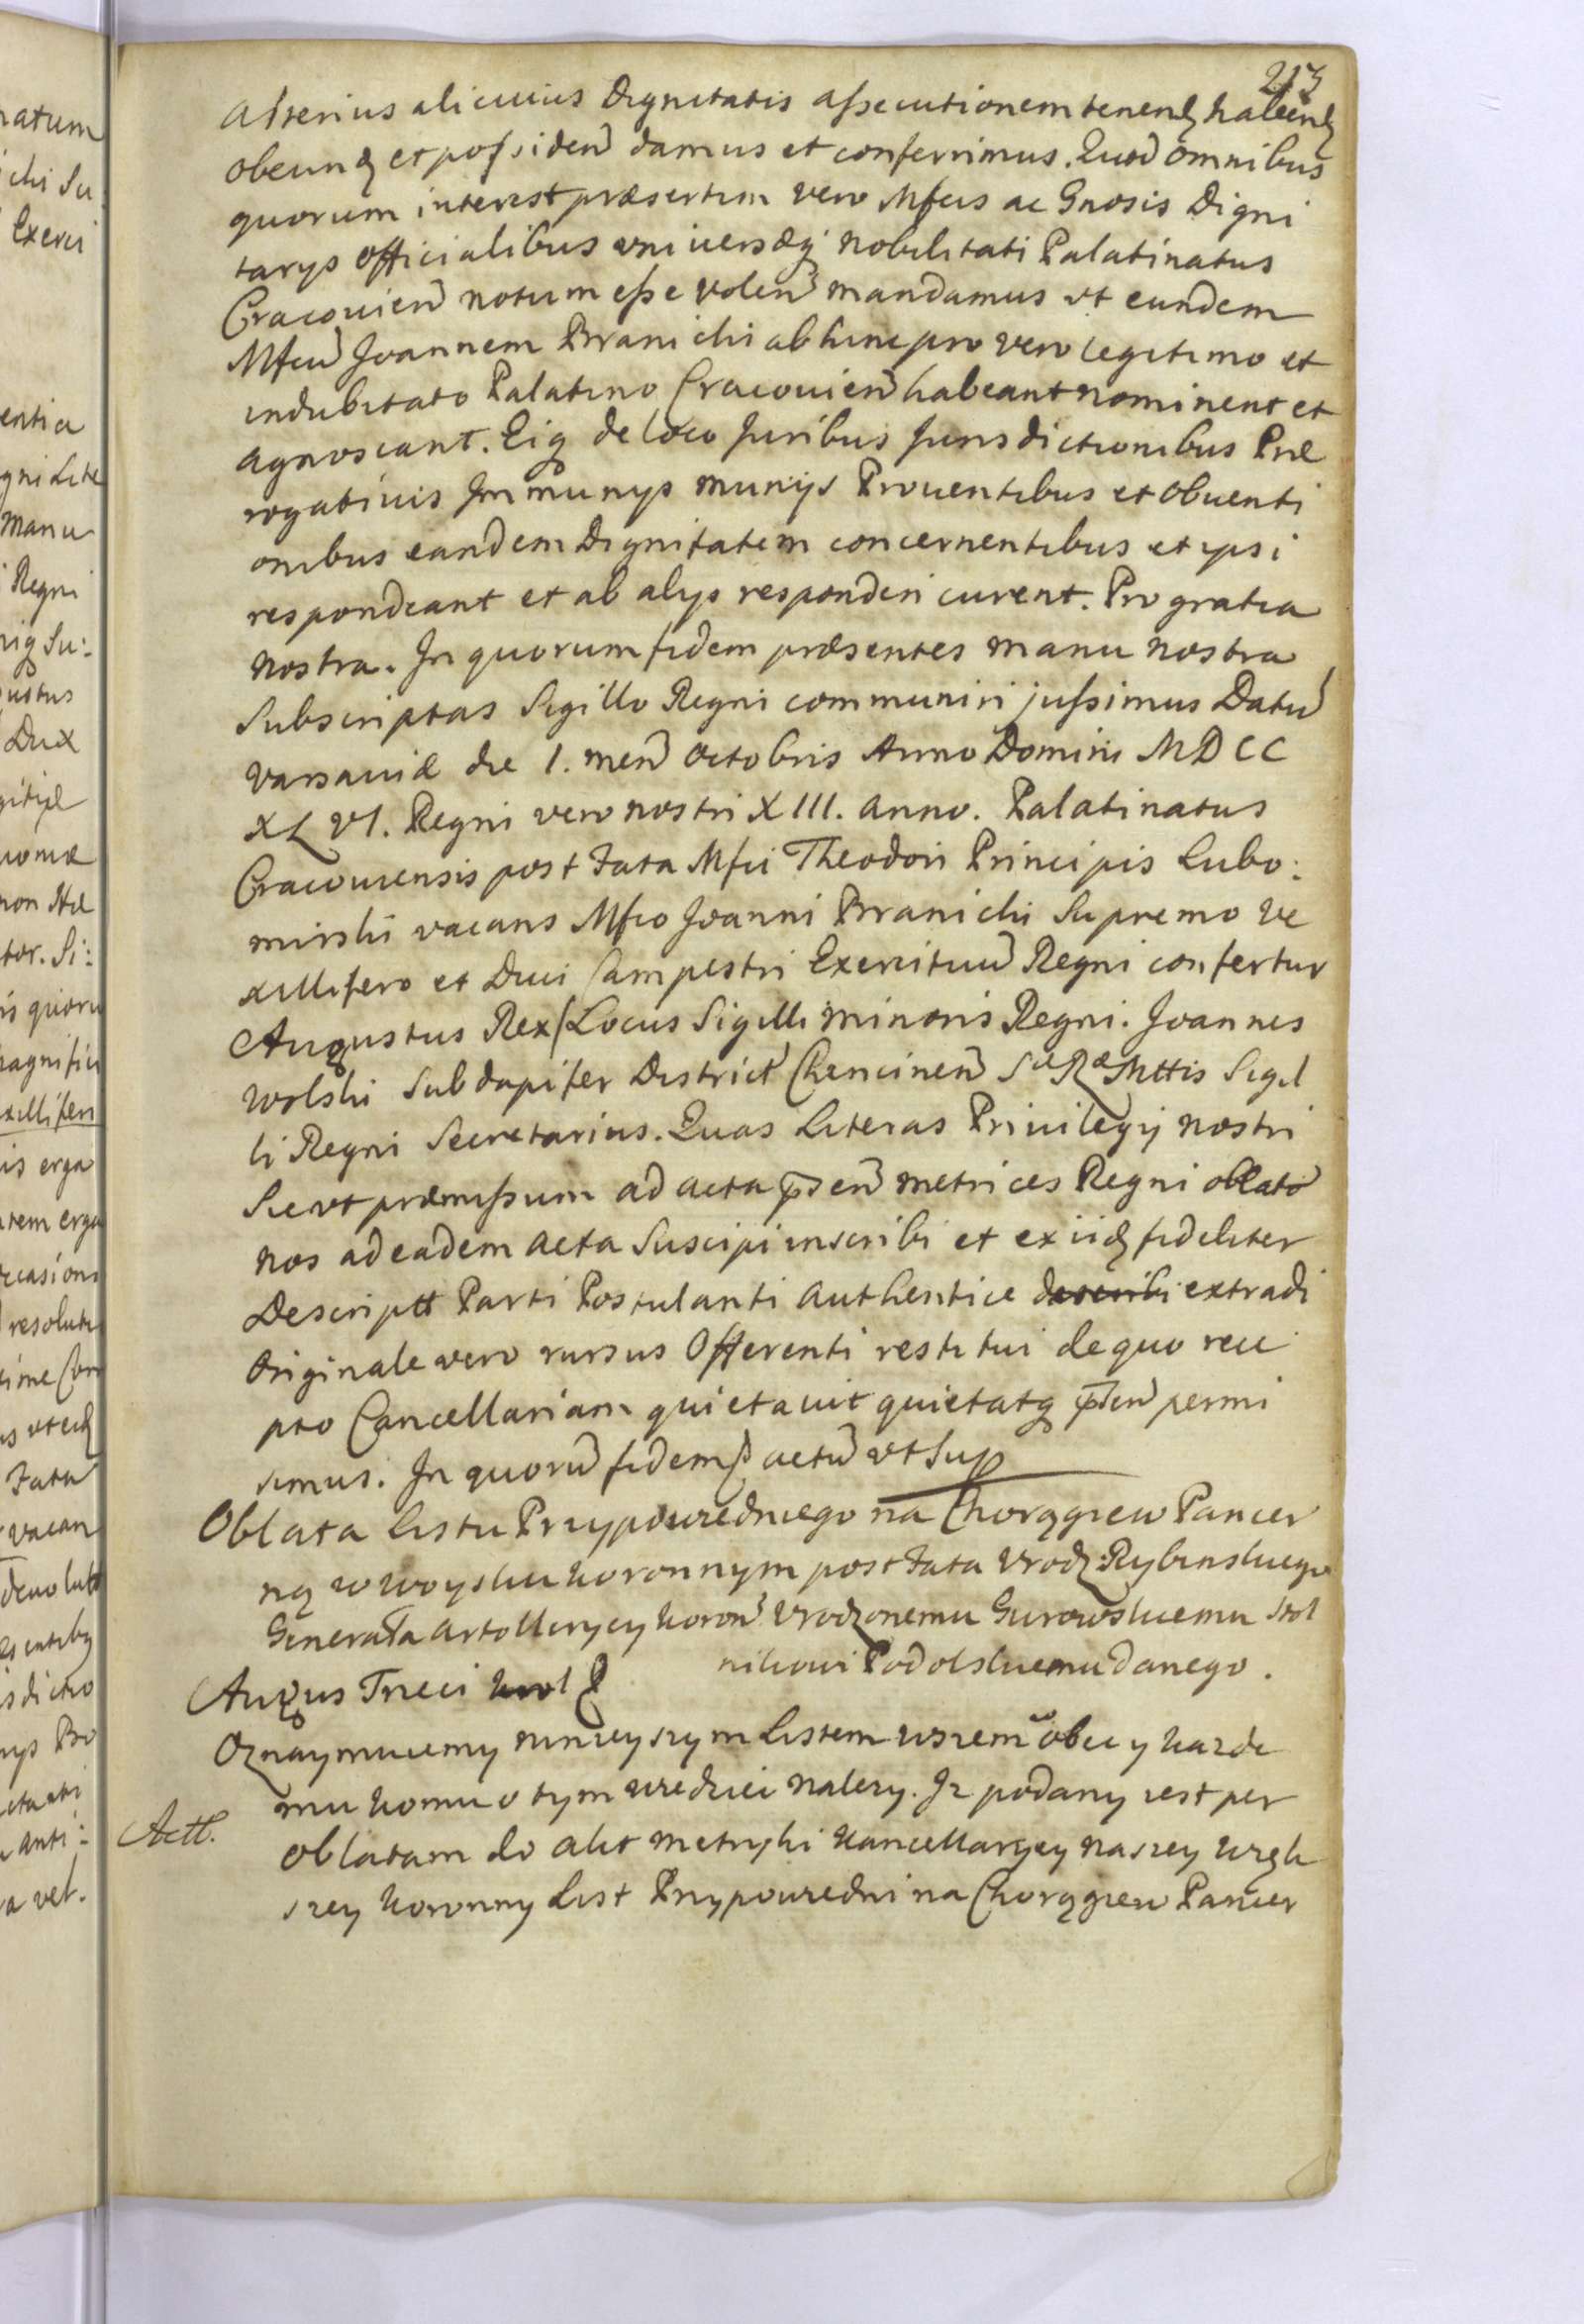 213
Alterius alicuius Dignitatis assecutionem tenenđ habenđ
obeunđ et possidenđ damus et conferrimus. Quod omnibus
quorum interest præsertim vero Mfcis ac Gnosis Digni
tarys officialibus universæq nobilitati Palatinatus
Cracovien notum esse volen mandamus ut eundem
Mfcu Joannem Branichi abhinc pro vero legitimo et
indubitato Palatino Cracouien habeant nominent et
agnoscant. Eiq de loco Juribus Jurisdictionibus Præ
rogativis Immunys munijs Prouentibus et obuenti
onibus eandem Dignitatem concernentibus et ipsi
respondeant et ab alys responderi curent. Pro gratia
nostra. In quorum fidem præsentes manu nostra
Subscriptas Sigillo Regni communiri jussimus Datu
varsauiæ die 1. men octobris Anno Domini MDCC
XLVI. Regni vero nostri XIII. anno. Palatinatus
Cracouiensis post Fata Mfci Theodori Principis Lubo:
mirski vacans Mfco Joanni Branichi Supremo ve
xillifero et Duci Campestri Exercituu Regni confertur
Augustus Rex/Locus Sigilli minoris Regni. Joannes
Wolski Subdapifer District Chencinen Sæ Ræ Mttis Sigil
li Regni Secretarius. Quas Literas Privilegij nostri
Sicut præmissum ad acta p̄sen metrices Regni oblato
nos ad eadem acta suscipi inscribi et ex iisđ fideliter
Descriptt Parti Postulanti authentice describi extradi
Originale vero rursus Offerenti restitui de quo rece
pto Cancellariam quietauit quietatq p̄sen permi
simus. In quoru fidem p actu ut Sup
Oblata Listu Przypowiedniego na Chorągiew Pancer
ną w woysku koronnym post Fata Urodz: Rybinskiego
Generała artolleryey koron Urodzonemu Gurowskiemu Stol
nikowi Podolskiemu danego.
Augus Trzeci krol
Oznaymuiemy ninieyszym Listem wszem obec y kazde
mu komu o tym wiedziec nalezy. Iz podany iest per
Actt.
oblatam do akt metryki kancellaryey naszey więk
szey koronny List Przypowiedni na Chorągiew Pancer